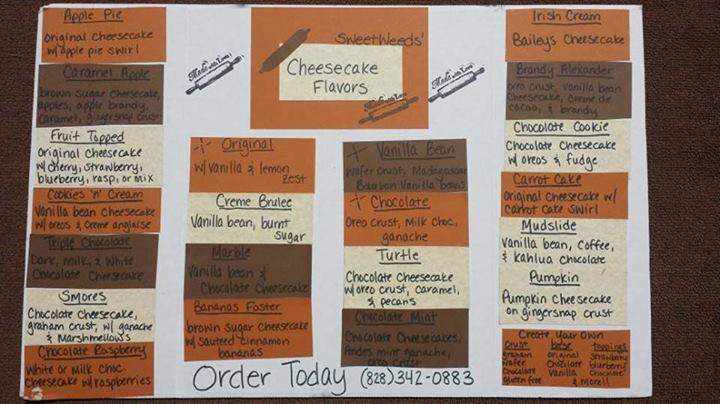 Apple Pie
original cheesecake
w/apple pie swirl
Caramel Apple
brown sugar cheesecake,
apples, apple brandy,
caramel, gingersnap crust
Fruit Topped
Original cheesecake
w/cherry, strawberry,
blueberry, rasp, or mix
Cookies 'n' Cream
Vanilla bean cheesecake
w/oreos & creme anglaise
Triple Chocolate
Dark, milk, & white
Chocolate Cheesecake
Smores
Chocolate cheesecake,
graham crust, w/ ganache
& Marshmellows
Chocolate Raspberry
White or Milk choc.
Cheesecake w/raspberries
SweetWeeds'
Cheesecake
Flavors
Made with Love
Made with Love
Made with Love
Original
w/vanilla & lemon
zest
Creme Brulee
Vanilla bean, burnt
sugar
Marble
Vanilla bean &
Chocolate Cheesecake
Bananas Foster
brown sugar cheesecake
w/ sauteed cinnamon
bananas
Vanilla Bean
wafer crust, Madagascar
Bourbon Vanilla beans
Chocolate
Oreo crust, Milk choc,
ganache
Turtle
Chocolate Cheesecake
w/oreo crust, caramel,
& pecans
Chocolate Mint
Chocolate Cheesecakes,
Andes mint ganache,
oreo crust
Irish Cream
Baileys Cheesecake
Brandy Alexander
oreo crust, vanilla bean
Cheesecake, creme de
cacao, & brandy
Chocolate Cookie
Chocolate Cheesecake
w/ oreos & fudge
Carrot Cake
Original Cheesecake w/
carrot cake swirl
Mudslide
Vanilla bean, coffee,
& kahlua chocolate
Pumpkin
Pumpkin Cheesecake
on gingersnap crust
Create Your Own
Crust base toppings
graham original strawberry
wafer Chocolate blueberry
chocolate Vanilla chocolate
gluten free & more!!
Order Today (828)342-0883